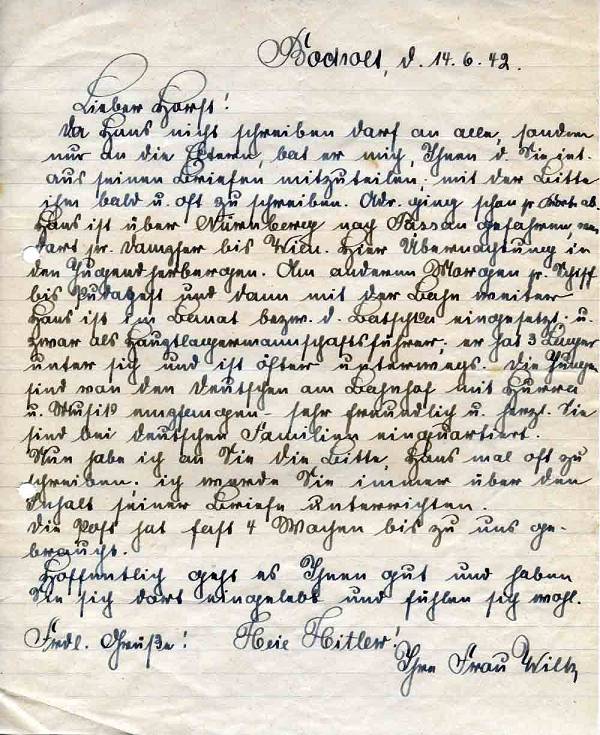 Bocholt, d. 14.6.42.
Lieber Horst!
Da Hans nicht schreiben darf an alle, sondern
nur an die Eltern, bat er mich, Ihnen d. Sie int.
aus seinen Briefen mitzuteilen, mit der Bitte
ihm bald u. oft zu schreiben. Adr. ging schon pr Karte ab.
Hans ist über Nürnberg nach Passau gefahren, von
dort pr. Dampfer bis Wien. Hier Übernachtung in
den Jugendherbergen. Am anderen Morgen pr. Schiff
bis Budapest und dann mit der Bahn weiter
Hans ist im Banat bezw. d. Batschka eingesetzt u.
zwar als Hauptlagermannschaftsführer; er hat 3 Lager
unter sich und ist öfter unterwegs. Die Jungen
sind von den Deutschen am Bahnhof mit Hurra
u. Musik empfangen - sehr freundlich u. herzl. Sie
sind bei deutschen Familien einquartiert.
Nun habe ich an Sie die Bitte, Hans mal oft zu
schreiben; ich werde Sie immer über den
Inhalt seiner Briefe unterrichten.
Die Post hat fast 4 Wochen bis zu uns ge-
braucht.
Hoffentlich geht es Ihnen gut und haben
Sie sich dort eingelebt und fühlen sich wohl.
Frdl. Grüße! Heil Hitler!
Ihre Frau